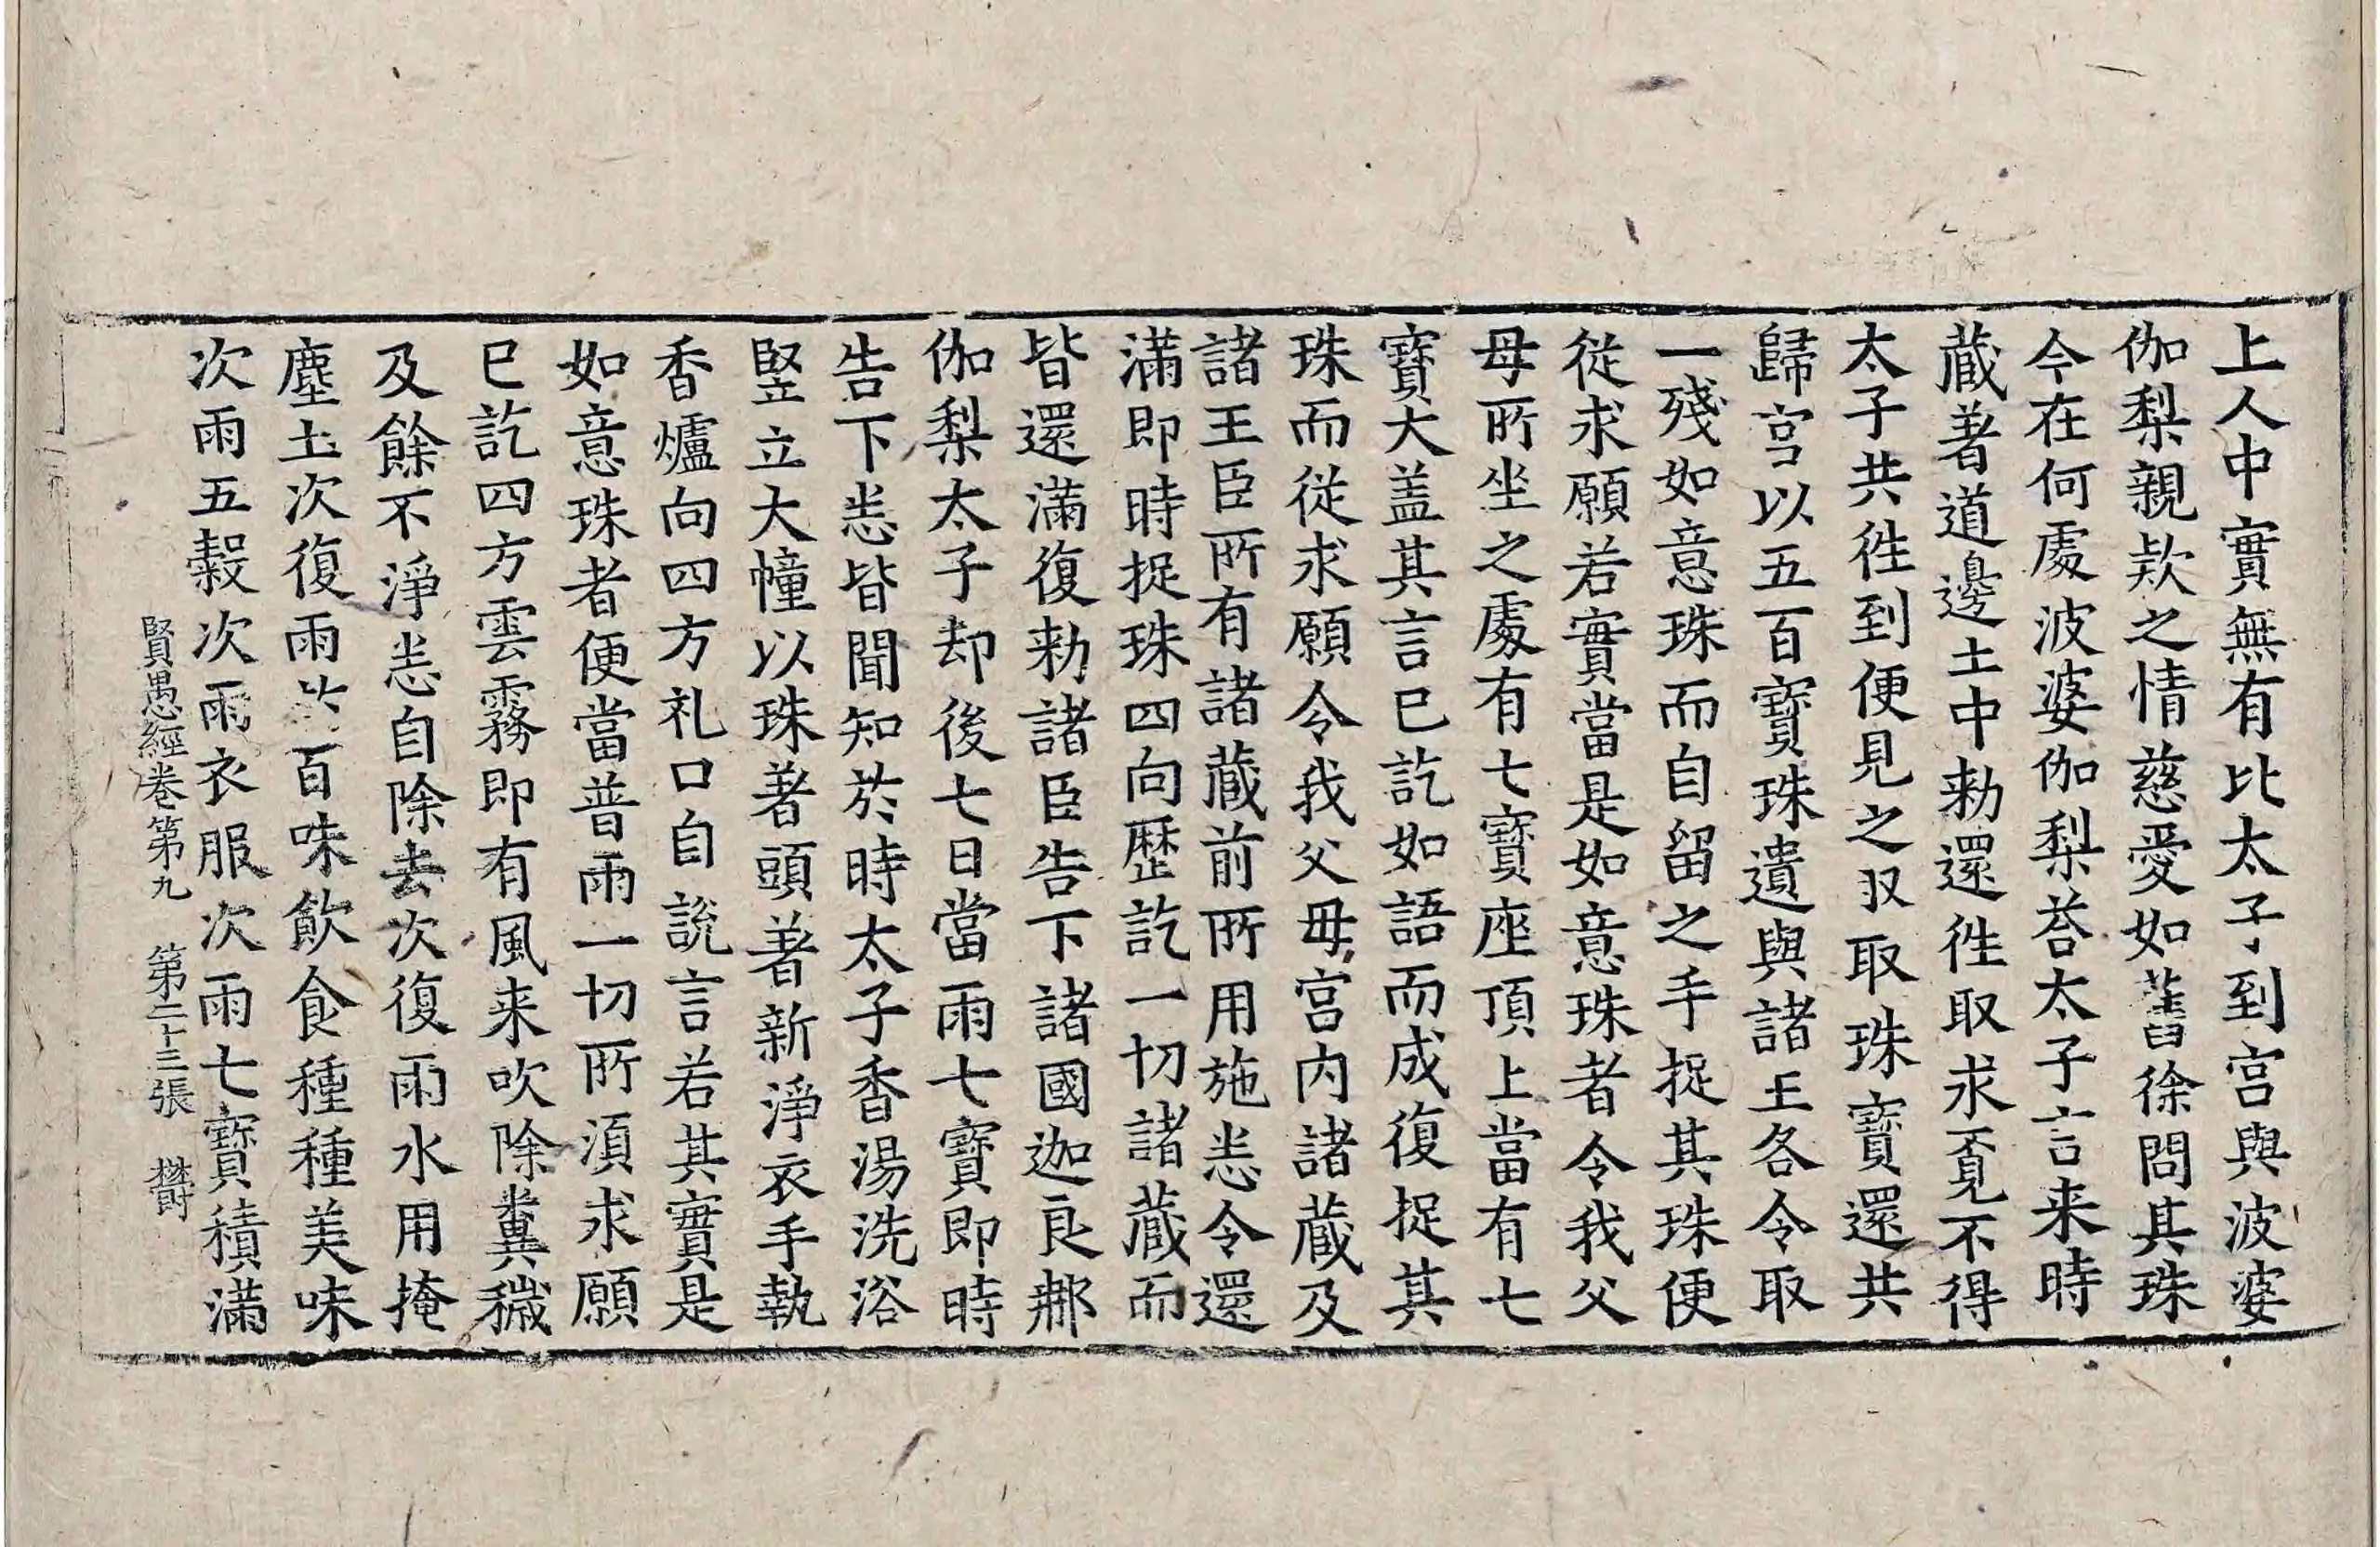 上人中實無有比太子到宫與波婆
伽梨親欵之情慈愛如舊徐問其珠
今在何處波婆伽梨荅太子言来時
蔵著道邊土中勑還徃取求覔不得
太子共徃到便見之収取珠寶還共
歸宫以五百寶珠遺與諸王各令取
一殘如意珠而自留之手捉其珠便
從求願若實當是如意珠者令我父
母所坐之處有七寶座頂上當有七
寶大盖其言已訖如語而成復捉其
珠而從求願令我父母宫内諸蔵及
諸王臣所有諸蔵前所用施悉令還
滿即時捉珠四向歷訖一切諸蔵而
皆還滿復勑諸臣告下諸國迦良郍
伽梨太子却後七日當雨七寶即時
告下悉皆聞知於時太子香湯洗浴
竪立大幢以珠著頭著新淨衣手執
香爐向四方礼口自説言若其實是
如意珠者便當普雨一切所湏求願
已訖四方雲霧即有風来吹除糞穢
及餘不淨悉自除去次復雨水用掩
塵土次復雨百味飲食種種美味
次雨五穀次雨衣服次雨七寶積滿
賢愚經卷第九 第二十三張 欝